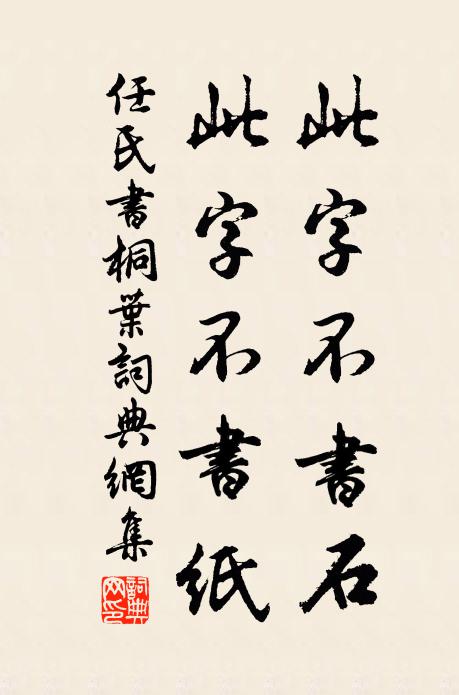 此字不書石
此字不書紙
任氏書桐葉詞典網集
詞典網印